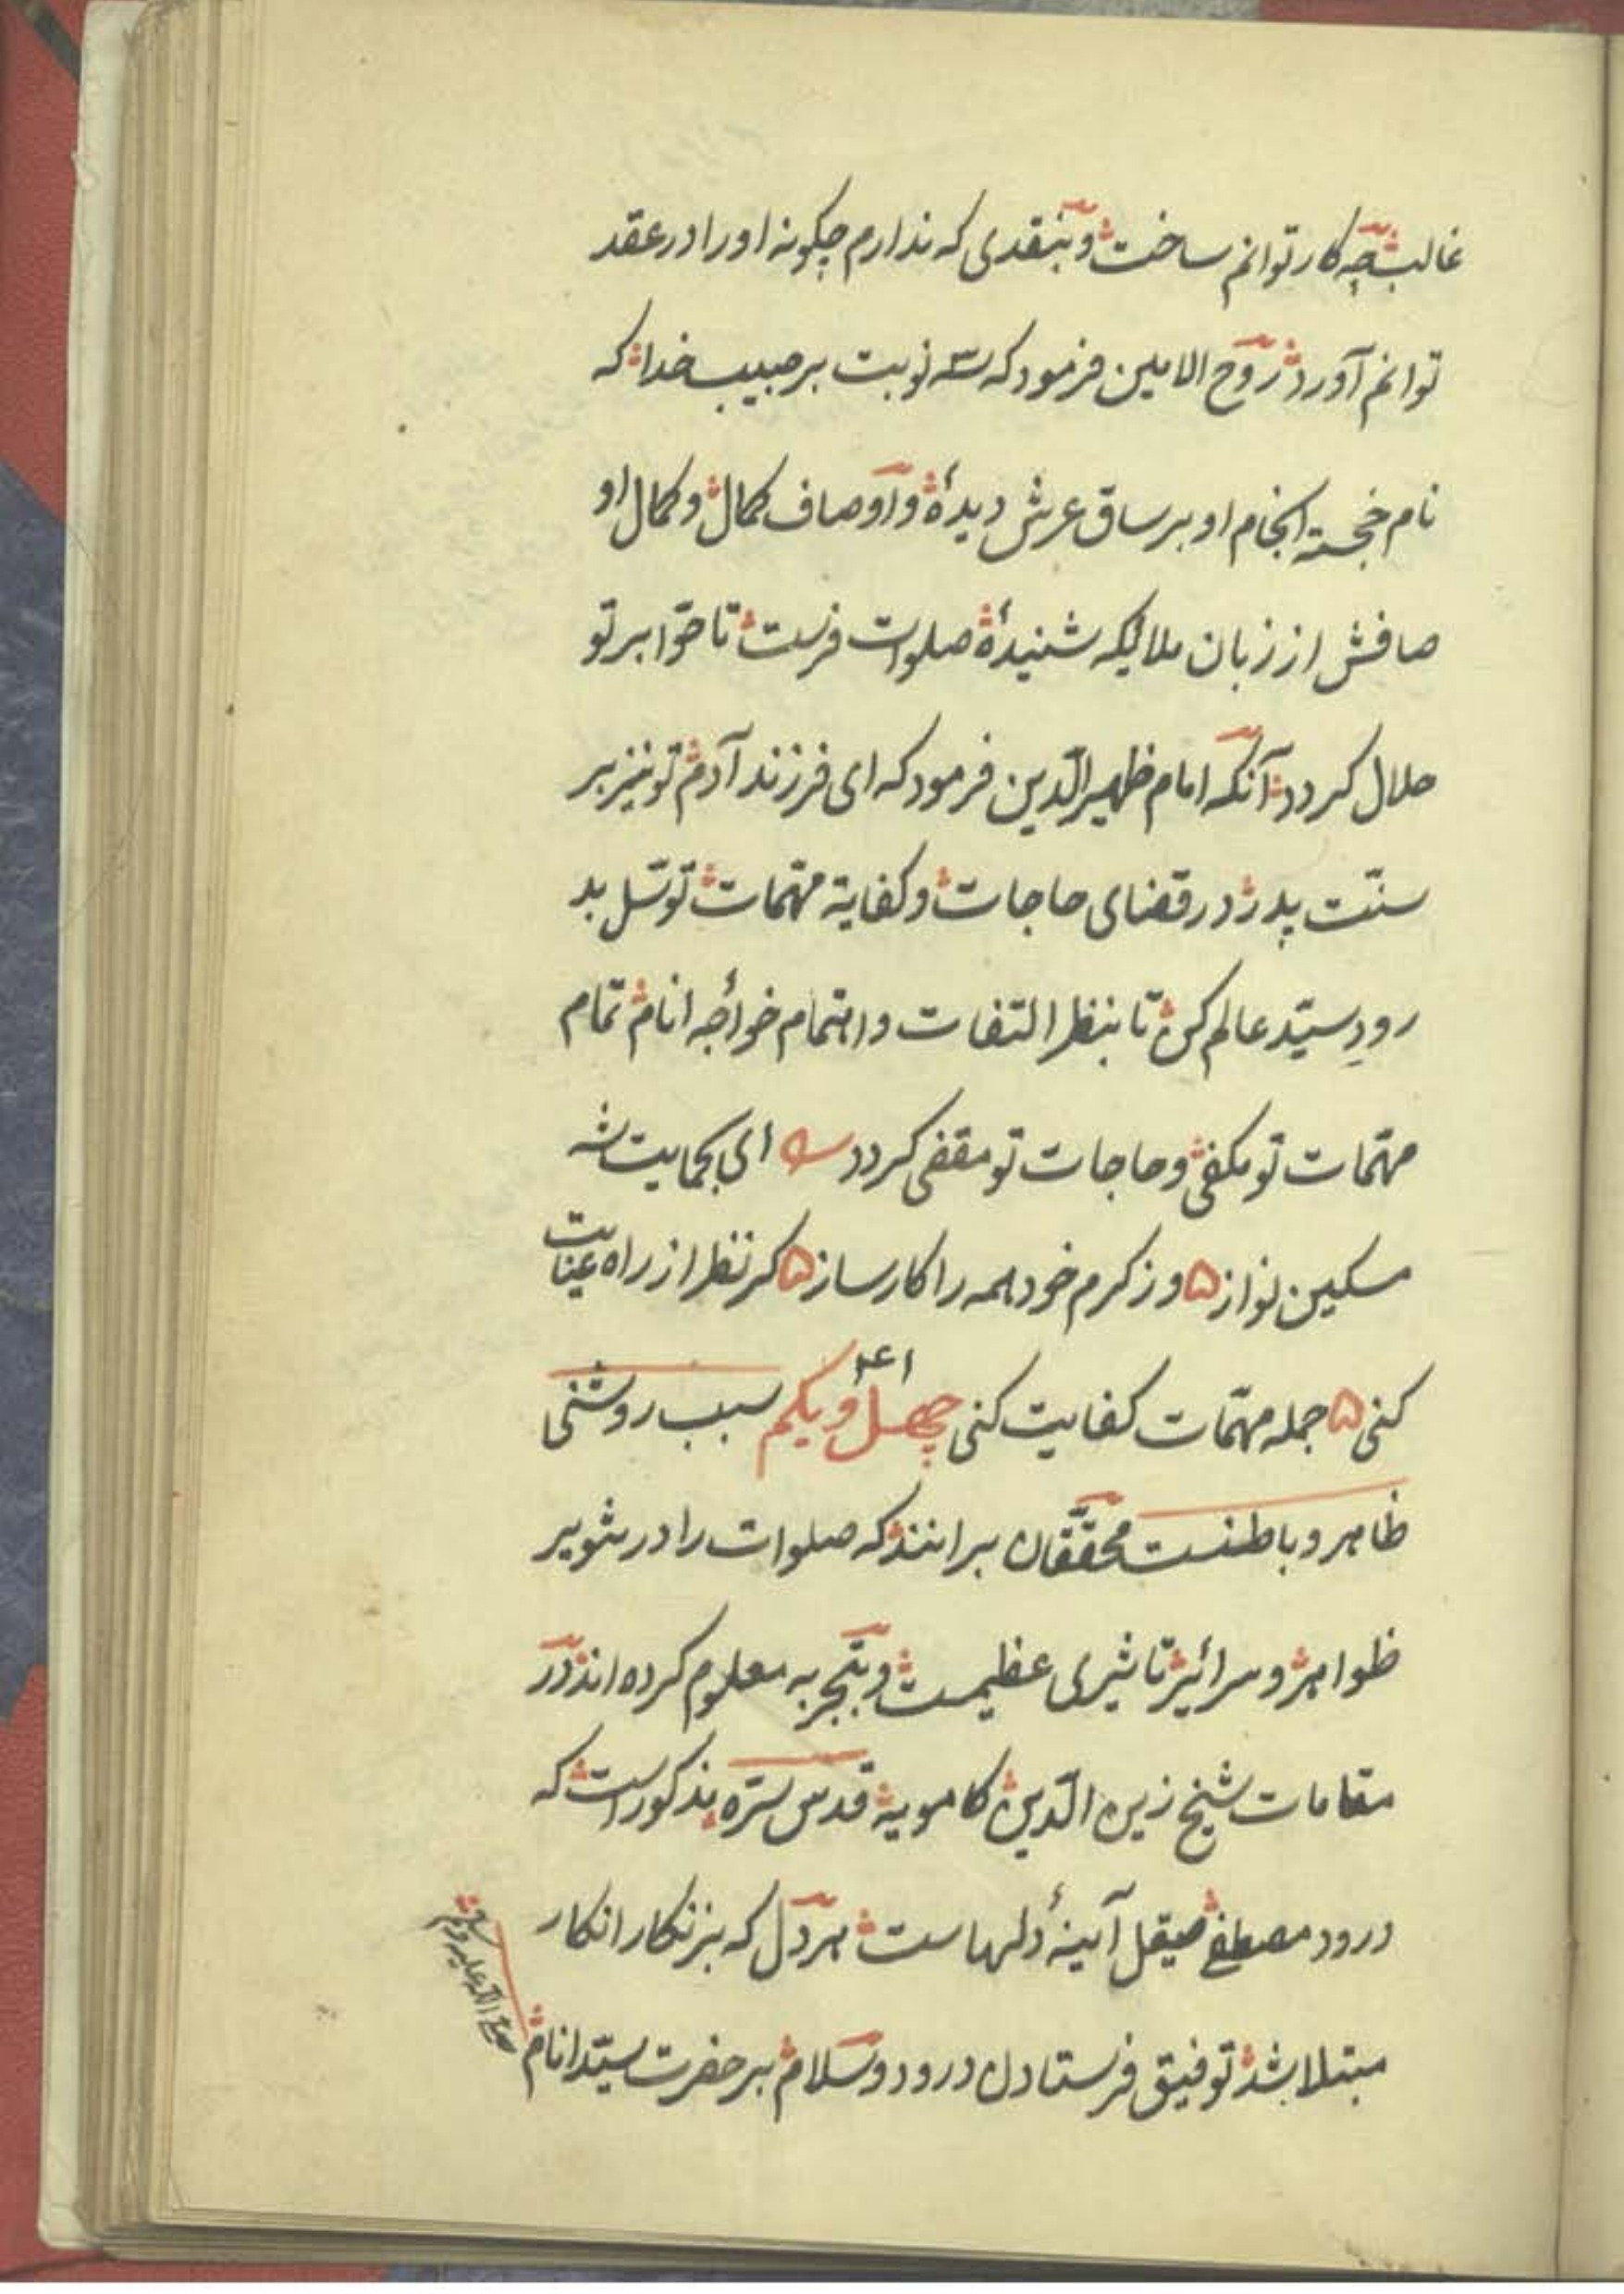 غالب چه کار توانم ساخت و بنقدی که ندارم چکونه او را در عقد
توانم آورد روح الامین فرمود که سه نوبت بر حبیب خدا که
نام خجسته انجام او بر ساق عرش دیدهٔ و اوصاف کمال و کمال او
صافش از زبان ملائیکه شنیدهٔ صلوات فرست تا حوّا بر تو
حلال کردد آنکه امام ظهیر الدّین فرمود که ای فرزند آدم تو نیز بر
سنّت پدر در قضای حاجات و کفایة مهّمات توسّل بد
رودِ سیّد عالم کن تا بنظر التفات و اهتمام خواجه انام تمام
مهّمات تو مکفی و حاجات تو مقفی کردد ای بحمایت شه
مسکین نواز ۵ وز کرم خود همه را کارساز ۵ کر نظر از راه عنایت
کنی ۵ جمله مهّمات کفایت کنی چهل و یکم ۴۱ سبب روشنی
ظاهر و باطنست محقّقان برانند که صلوات را در تنویر
ظواهر و سرائر تاثیری عظیمست و بتجربه معلوم کرده اند در
مقامات شیخ زین الدّین کامویه قدس سرّه مذکور است که
درود مصطفی صیقل آینهٔ دلهاست هر دل که بزنکار انکار
مبتلا شد توفیق فرستادن درود و سلام بر حضرت سیّد انام
صلی الله علیه وسلم